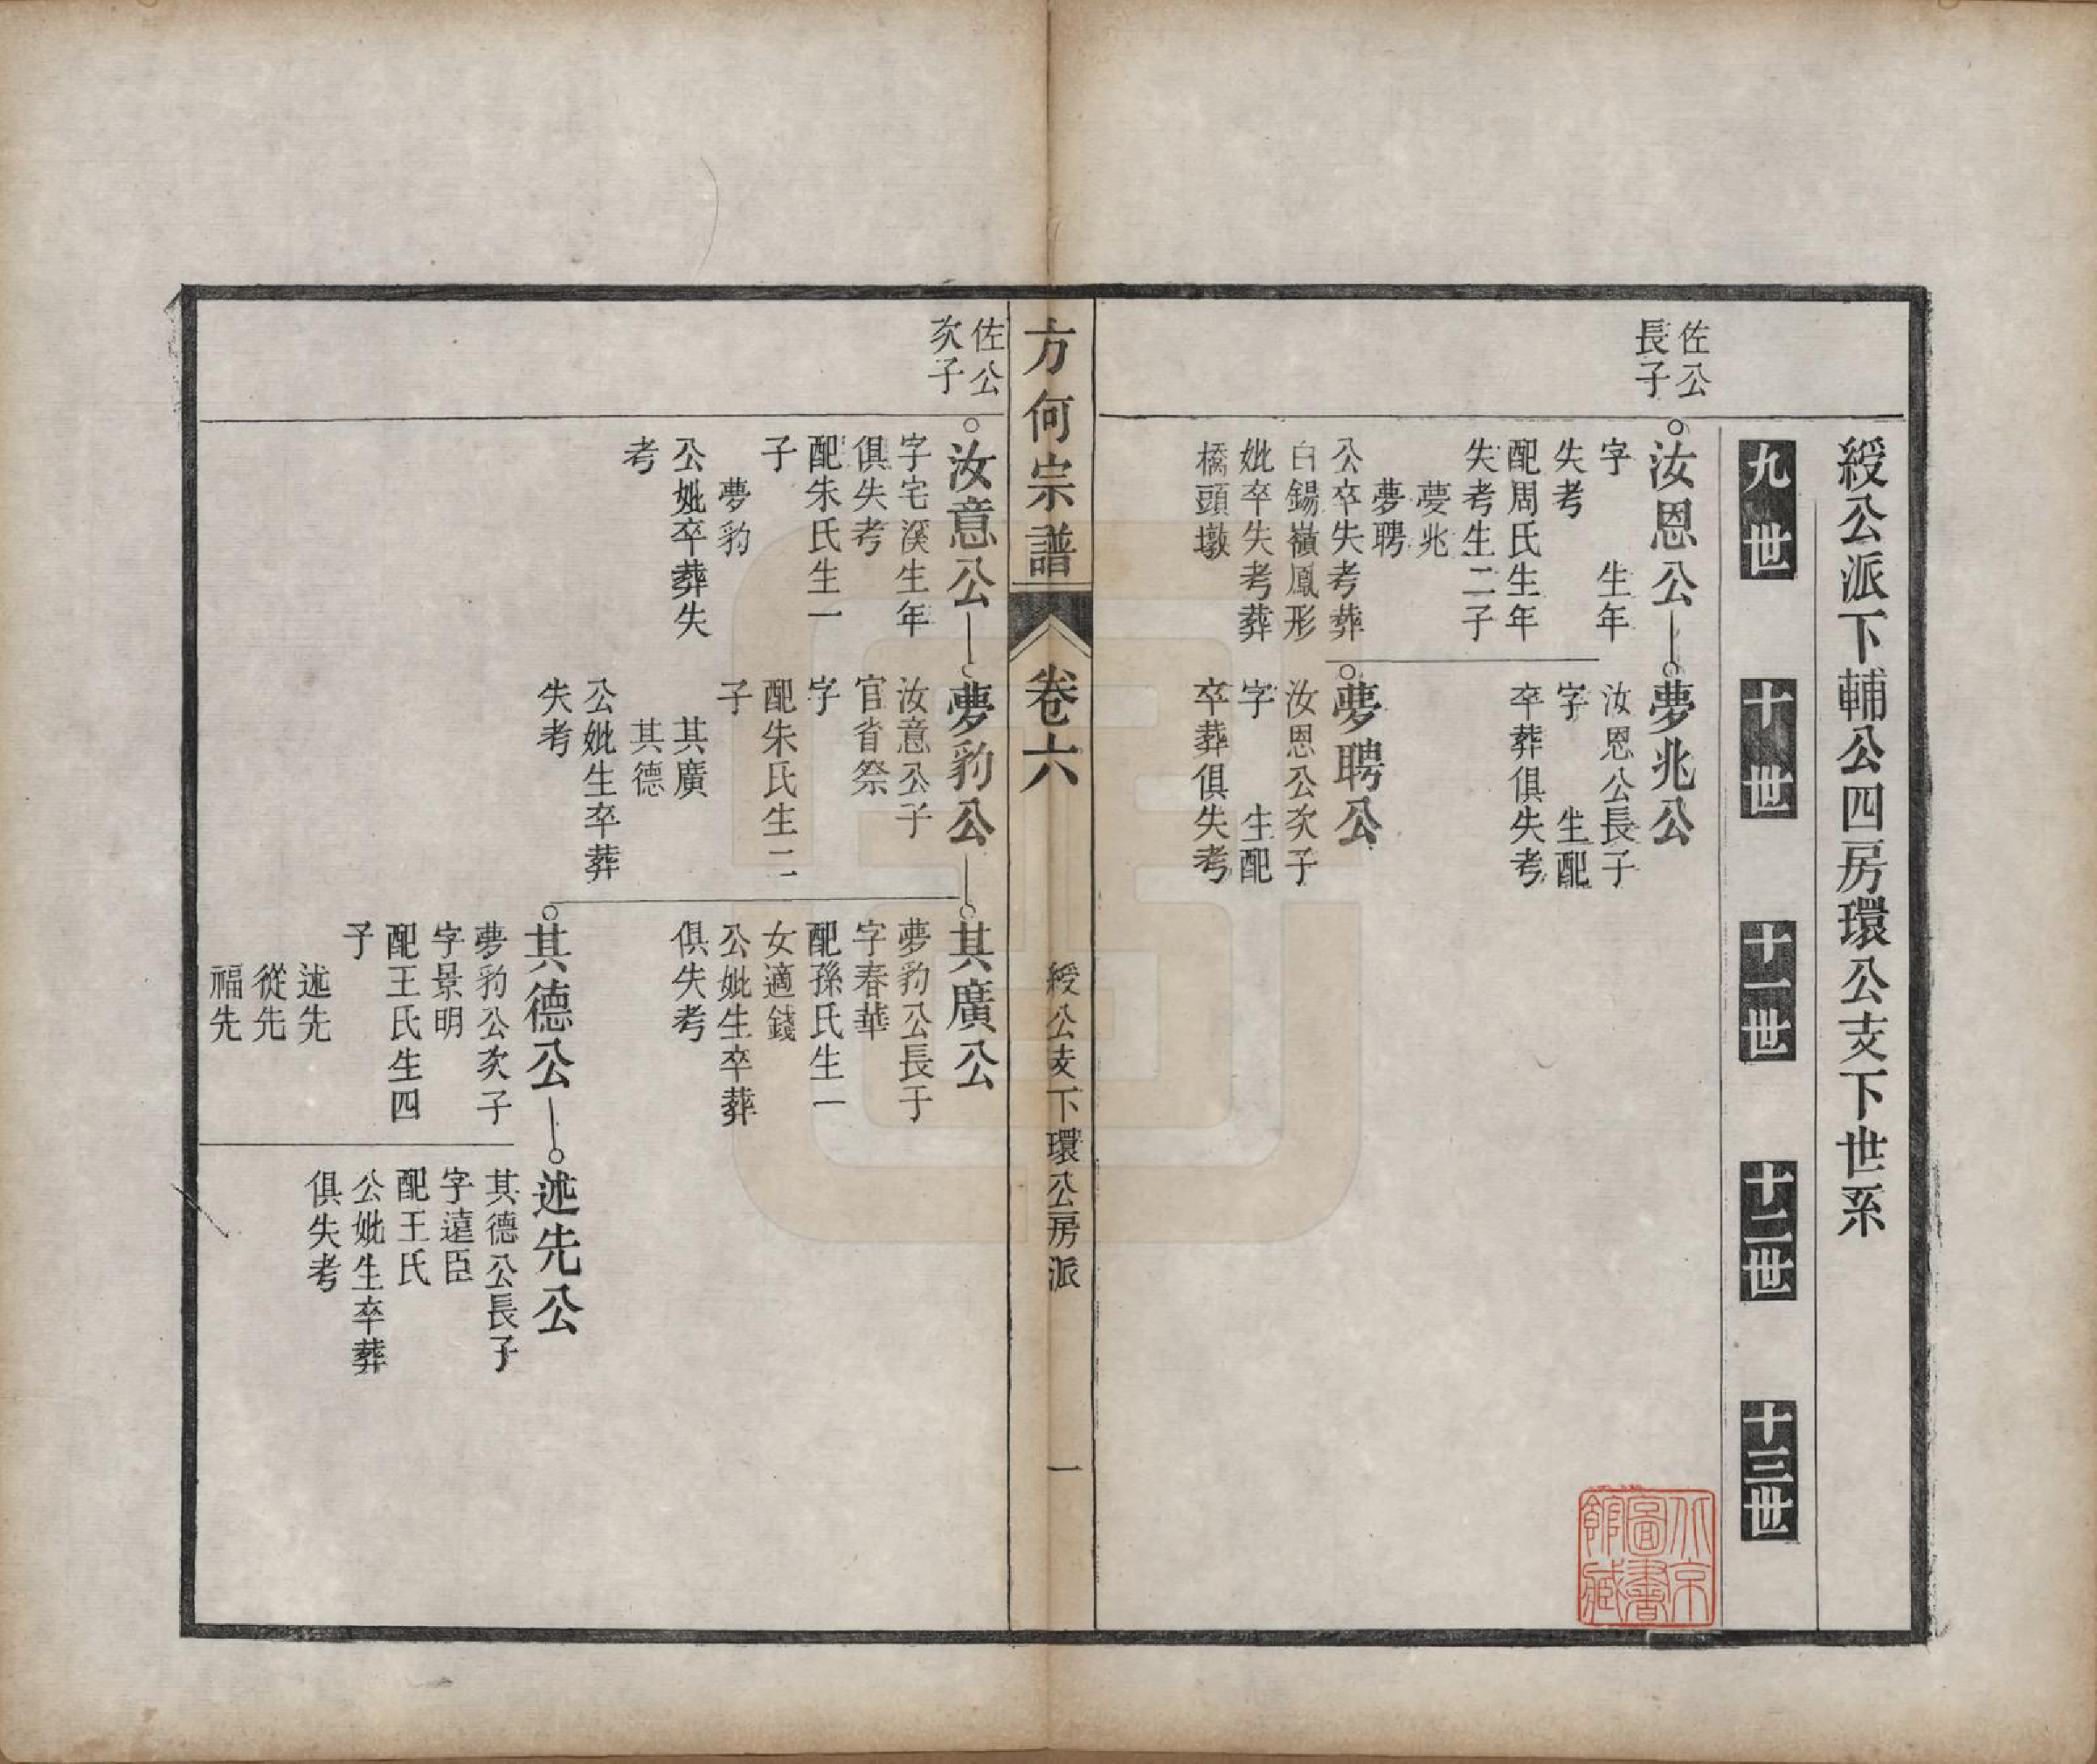 綬公派下輔公四房環公支下世系
九世
十世
十一世
十二世
十三世
佐公
長子
汝恩公
字　生年
失考
配周氏生年
失考生二子
夢兆
夢聘
公卒失考葬
白錫嶺鳳形
妣卒失考葬
橋頭墩
夢兆公
汝恩公長子
字　生配
卒葬俱失考
夢聘公
汝恩公次子
字　生配
卒葬俱失考
方何宗譜
卷六
綬公支下環公房派
一
佐公
次子
汝意公
字宅溪生年
俱失考
配朱氏生一
子
夢豹
公妣卒葬失
考
夢豹公
汝意公子
官省祭
字
配朱氏生二
子
其廣
其德
公妣生卒葬
失考
其廣公
夢豹公長子
字春華
配孫氏生一
女適錢
公妣生卒葬
俱失考
其德公
夢豹公次子
字景明
配王氏生四
子
述先
從先
福先
述先公
其德公長子
字遠臣
配王氏
公妣生卒葬
俱失考
北京
圖書
館藏